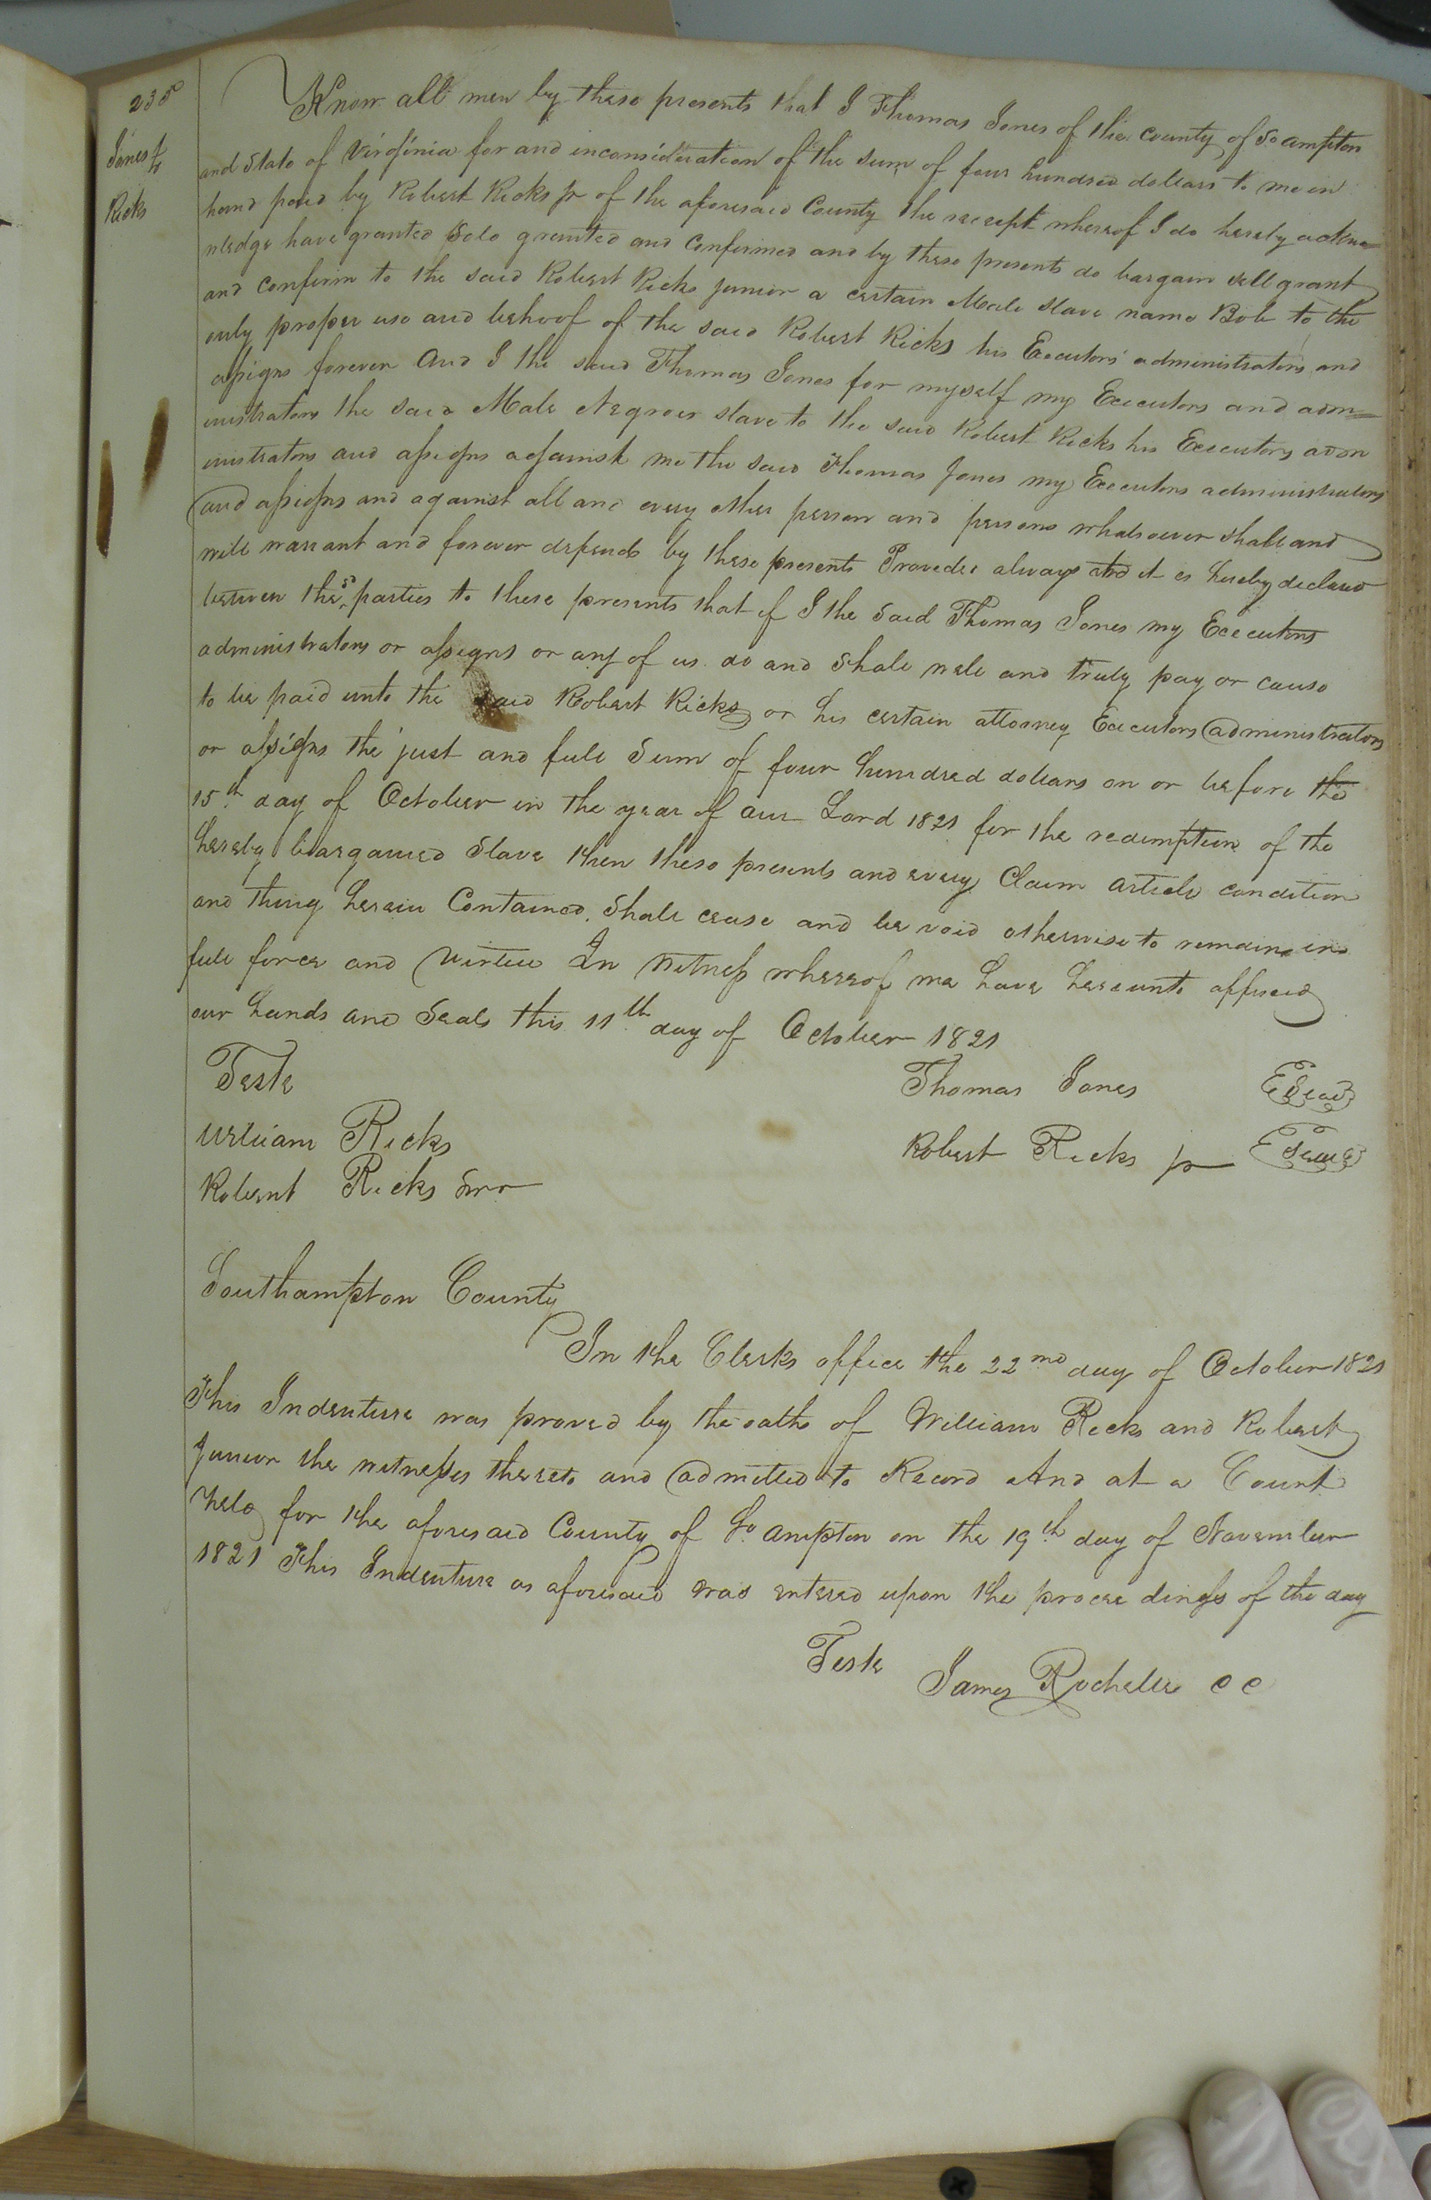 238
Jones &
to
Ricks
Know all men by these presents that I Thomas Jones of the county of So ampton
and State of Virginia for and inconsideration of the sum of four hundred dollars to me in
hand paid by Robert Ricks jr of the aforesaid County the receipt whereof I do hereby ackno=
wledge have granted Sold granted and Confirmed and by these presents do bargain sell grant
and confirm to the said Robert Ricks junior a certain Male Slave name Bob to the
only proper use and behoof of the said Robert Ricks his Executors administrators and
assigns forever And I the said Thomas Jones for myself my Executors and adm=
inistrators the said Male Negroer slave to the said Robert Ricks his Executors adm
inistrators and assigns against me the said Thomas Jones my Executors administrators
and assigns and against all and every other person and persons whatsoever shall and
will warrant and forever defends by these presents Provided always and it is hereby declared
between the sd parties to these presents that if I the Said Thomas Jones my Executors
administrators or assigns or any of us do and Shall well and truly pay or cause
to be paid unto the said Robert Ricks or his certain attorney Executors administrators
or assigns the just and full Sum of four hundred dollars on or before the
15th day of October in the year of our Lord 1821 for the redemption of the
hereby bargained Slave then these presents and every Claim article condition
and thing herein Contained Shall cease and be void otherwise to remain in
full force and Virtue In Witness whereof we have hereunto affixed
our hands and Seals this 11th day of October 1821
Teste
Thomas Jones Seal
William Ricks
Robert Ricks jr Seal
Robert Ricks Snr
Southampton County
In the Clerks office the 22nd day of October 1821
This Indenture was proved by the oaths of William Ricks and Robert
Junior the witnesses thereto and admitted to Record And at a Court
held for the aforesaid County of So ampton on the 19th day of November
1821 This Indenture as aforesaid was entered upon the proceedings of the day
Teste
James Rochelle CC